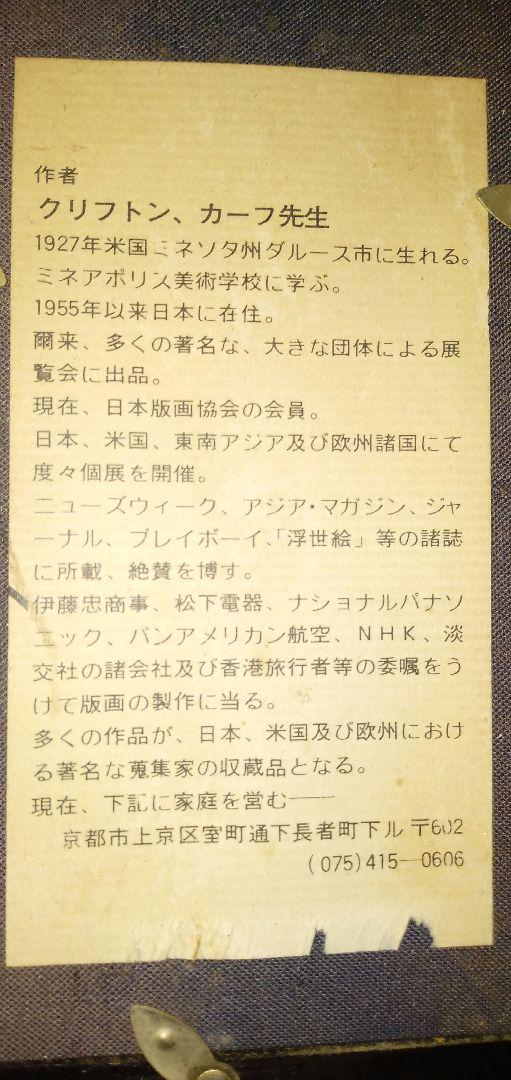 作者
クリフトン、カーフ先生
1927年米国ミネソタ州ダルース市に生れる。
ミネアポリス美術学校に学ぶ。
1955年以来日本に在住。
爾来、多くの著名な、大きな団体による展
覧会に出品。
現在、日本版画協会の会員。
日本、米国、東南アジア及び欧州諸国にて
度々個展を開催。
ニューズウィーク、アジア・マガジン、ジャ
ーナル、プレイボーイ、「浮世絵」等の諸誌
に所載、絶賛を博す。
伊藤忠商事、松下電器、ナショナルパナソ
ニック、パンアメリカン航空、NHK、淡
交社の諸会社及び香港旅行者等の委嘱をう
けて版画の製作に当る。
多くの作品が、日本、米国及び欧州におけ
る著名な蒐集家の収蔵品となる。
現在、下記に家庭を営む——
京都市上京区室町通下長者町下ル 〒602
(075)415—0606